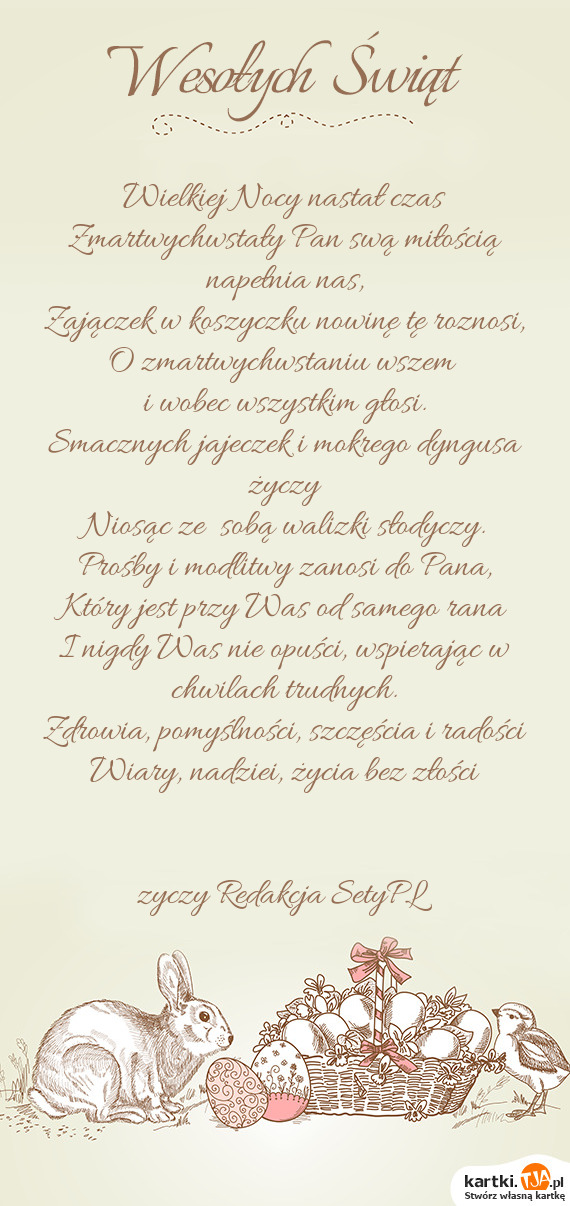 Wesołych Świąt
Wielkiej Nocy nastał czas
Zmartwychwstały Pan swą miłością
napełnia nas,
Zajączek w koszyczku nowinę tę roznosi,
O zmartwychwstaniu wszem
i wobec wszystkim głosi.
Smacznych jajeczek i mokrego dyngusa
życzy
Niosąc ze sobą walizki słodyczy.
Prośby i modlitwy zanosi do Pana,
Który jest przy Was od samego rana
I nigdy Was nie opuści, wspierając w
chwilach trudnych.
Zdrowia, pomyślności, szczęścia i radości
Wiary, nadziei, życia bez złości
zyczy Redakcja SetyPL
kartki.TJA.pl
Stwórz własną kartkę